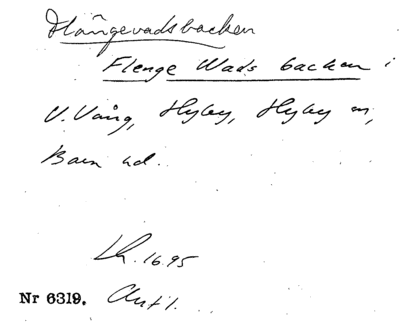 Flängevadsbacken
Flenge Wads backen i
V. Vång, Hyby, Hyby sn,
Bara hd.
Lh. 16.95
Nr 6319.